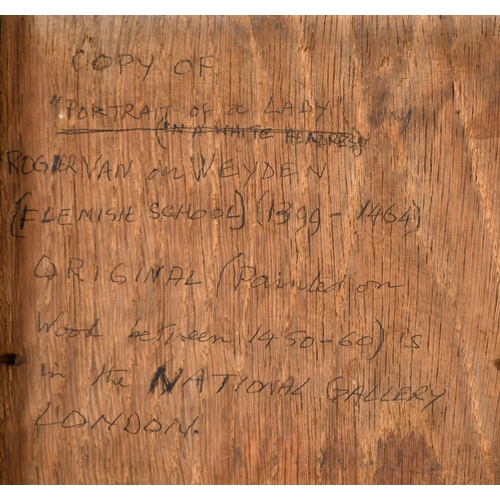 COPY OF
"PORTRAIT of a LADY" by
(IN A WHITE HEADRESS)
ROGIER VAN der WEYDEN
[FLEMISH SCHOOL] (1399-1464)
ORIGINAL (Painted on
Wood between 1450-60) is
in the NATIONAL GALLERY
LONDON.